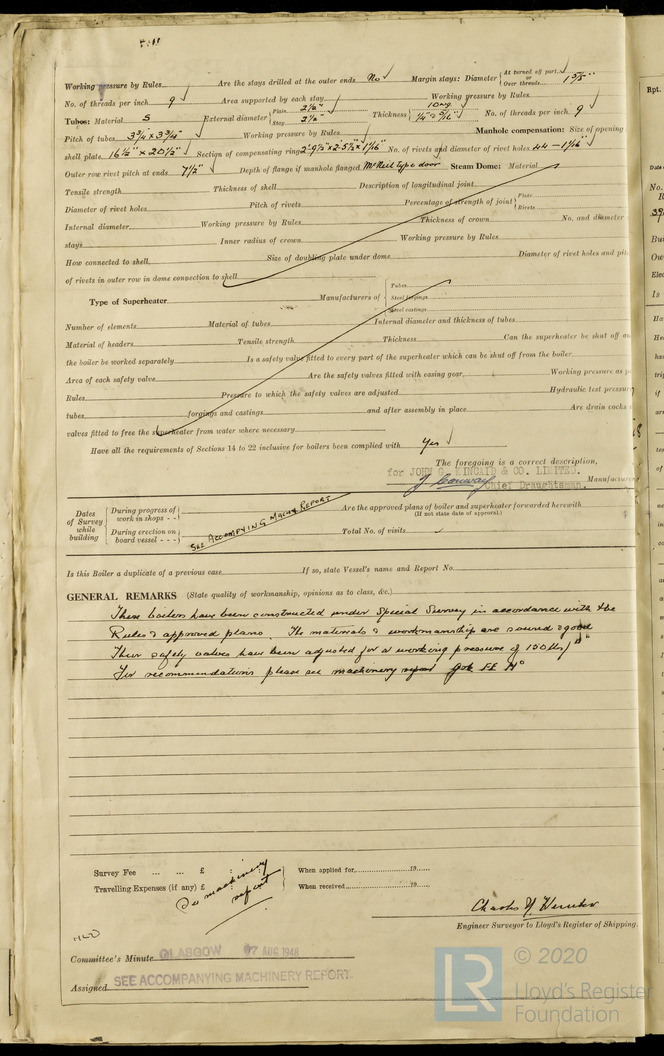 Working pressure by Rules ✓ Are the stays drilled at the outer ends No ✓ Margin stays: Diameter { At turned off part, or Over threads 1 5/8" ✓
No. of threads per inch 9 ✓ Area supported by each stay Working pressure by Rules
Tubes: Material S External diameter { Plain 2½" Stay 2½" ✓ Thickness { 10 WG ¼" & 5/16" ✓ No. of threads per inch 9 ✓
Pitch of tubes 3¾" x 3¾" ✓ Working pressure by Rules ✓ Manhole compensation: Size of opening
shell plate 16½" x 20½" ✓ Section of compensating ring No. of rivets and diameter of rivet holes 44 - 1 1/16" ✓
Outer row rivet pitch at ends 7½" ✓ Depth of flange if manhole flanged McNeil type door Steam Dome: Material
Tensile strength Thickness of shell Description of longitudinal joint
Diameter of rivet holes Pitch of rivets Percentage of strength of joint { Plate Rivets
Internal diameter Working pressure by Rules Thickness of crown No. and diameter
stays Inner radius of crown Working pressure by Rules
How connected to shell Size of doubling plate under dome Diameter of rivet holes and pit
of rivets in outer row in dome connection to shell
Type of Superheater Manufacturers of { Tubes Steel forgings Steel castings
Number of elements Material of tubes Internal diameter and thickness of tubes
Material of headers Tensile strength Thickness Can the superheater be shut off an
the boiler be worked separately Is a safety valve fitted to every part of the superheater which can be shut off from the boiler
Area of each safety valve Are the safety valves fitted with easing gear Working pressure as p
Rules Pressure to which the safety valves are adjusted Hydraulic test pressur
tubes forgings and castings and after assembly in place Are drain cocks
valves fitted to free the superheater from water where necessary
Have all the requirements of Sections 14 to 22 inclusive for boilers been complied with Yes ✓
The foregoing is a correct description,
for JOHN G. KINCAID & CO. LIMITED.
J Conway Chief Draughtsman. Manufacturer
Dates of Survey while building { During progress of work in shops - - During erection on board vessel - - - } SEE ACCOMPYING MACHY REPORT Are the approved plans of boiler and superheater forwarded herewith (If not state date of approval.)
Total No. of visits ✓
Is this Boiler a duplicate of a previous case If so, state Vessel's name and Report No.
GENERAL REMARKS (State quality of workmanship, opinions as to class, &c.)
These boilers have been constructed under Special Survey in accordance with the
Rules & approved plans. The materials & workmanship are sound & good
Their safety valves have been adjusted for a working pressure of 150 lbs/□"
For recommendations please see machinery report FE No
Survey Fee ... ... £ : : } When applied for, 19
Travelling Expenses (if any) £ : : When received, 19
See machinery report
Engineer Surveyor to Lloyd's Register of Shipping.
Committee's Minute GLASGOW 17 AUG 1948
SEE ACCOMPANYING MACHINERY REPORT.
Assigned
LR © 2020
Lloyd's Register
Foundation